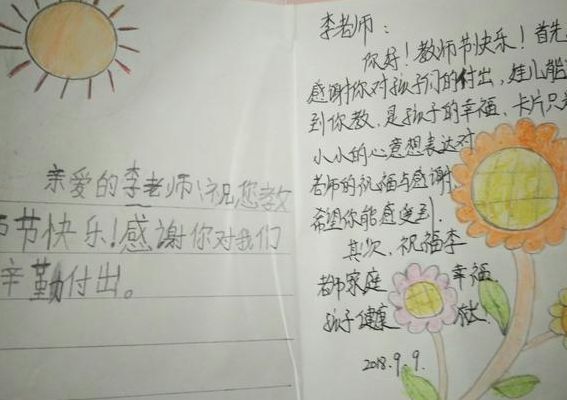 亲爱的李老师:祝您教
师节快乐!感谢你对我们
辛勤付出。
李老师:
你好!教师节快乐!首先
感谢你对孩子们的付出,娃儿能
到你教,是孩子的幸福,卡片只
小小的心意想表达对
老师的祝福与感谢.
希望你能感受到.
其次,祝福李
老师家庭 幸福.
孩子健康
2018.9.9.